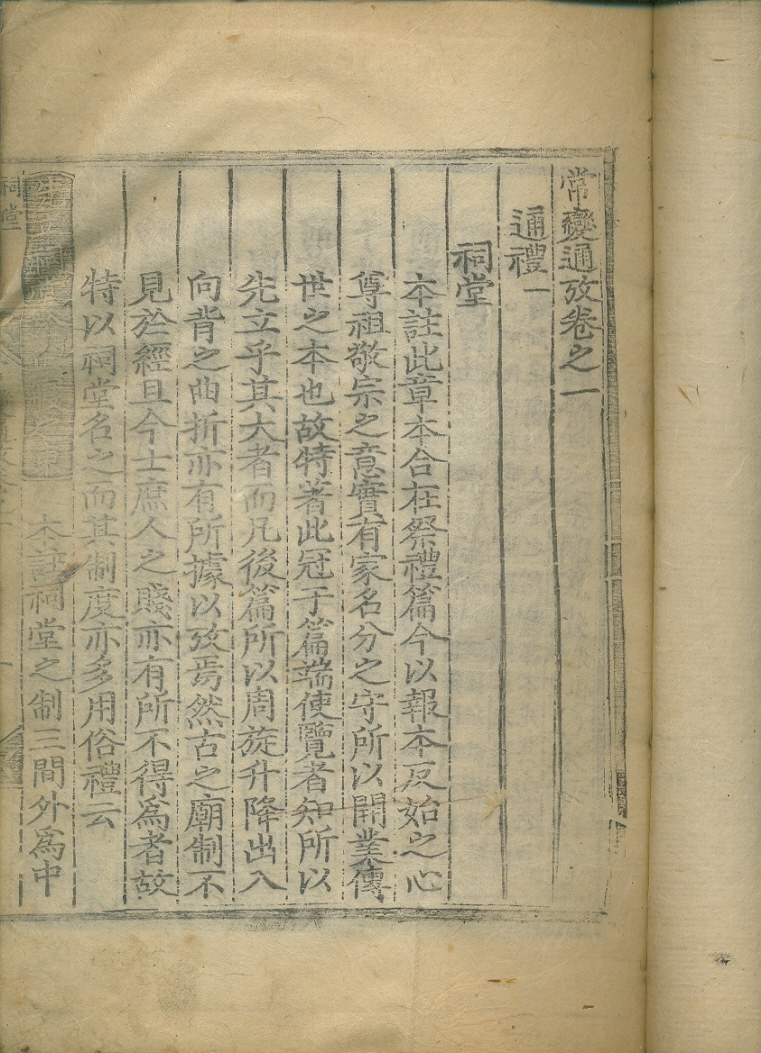 常變通攷卷之一
通禮一
祠堂
本註此章本合在祭禮篇今以報本反始之心
尊祖敬宗之意實有家名分之守所以開業傳
世之本也故特著此冠于篇端使覽者知所以
先立乎其大者而凡後篇所以周旋升降出入
向背之曲折亦有所據以攷焉然古之廟制不
見於經且今士庶人之賤亦有所不得爲者故
特以祠堂名之而其制度亦多用俗禮云
本註祠堂之制三間外爲中
祠堂